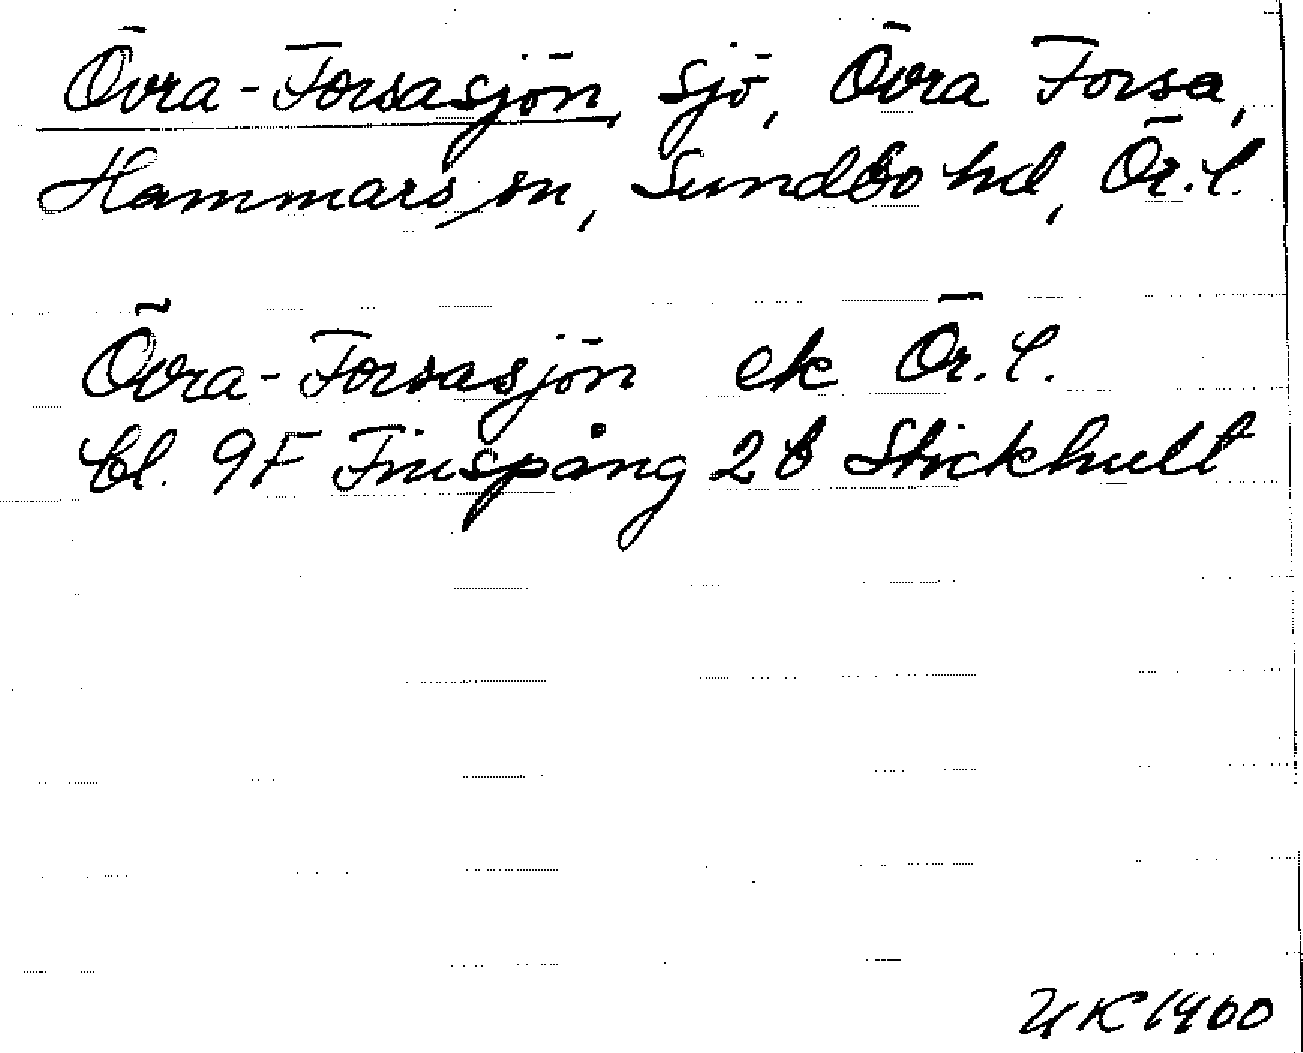 Övra-Forsasjön, sjö, Övra Forsa,
Hammars sn, Sundbo hd, Ör. l.
Övra-Forsasjön ek Ör. l.
bl. 9F Finspång 2b Stickhult